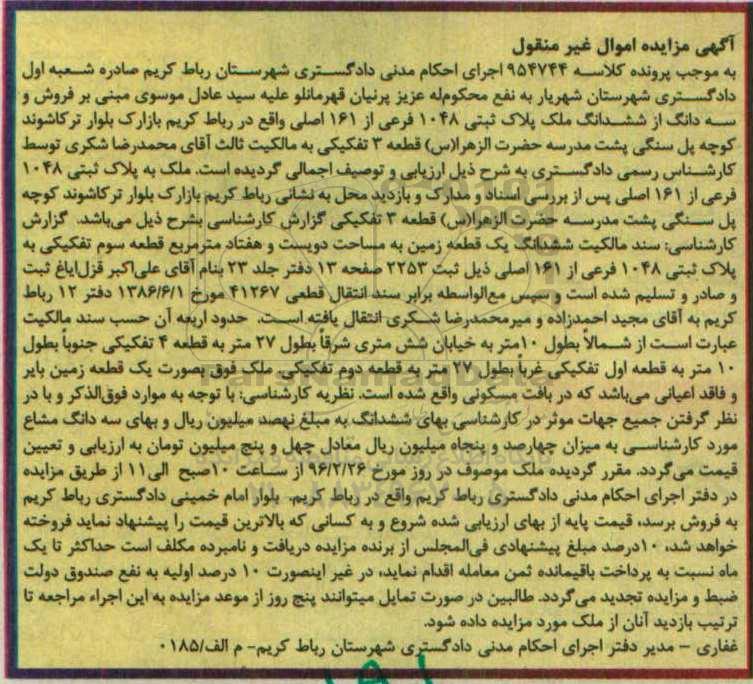 آگهی مزایده اموال غیر منقول
به موجب پرونده کلاسه ۹۵۴۷۴۴ اجرای احکام مدنی دادگستری شهرستان رباط کریم صادره شعبه اول
دادگستری شهرستان شهریار به نفع محکوم‌له عزیز پرنیان قهرمانلو علیه سید عادل موسوی مبنی بر فروش و
سه دانگ از ششدانگ ملک پلاک ثبتی ۱۰۴۸ فرعی از ۱۶۱ اصلی واقع در رباط کریم بازارک بلوار ترکاشوند
کوچه پل سنگی پشت مدرسه حضرت الزهرا(س) قطعه ۳ تفکیکی به مالکیت ثالث آقای محمدرضا شکری توسط
کارشناس رسمی دادگستری به شرح ذیل ارزیابی و توصیف اجمالی گردیده است. ملک به پلاک ثبتی ۱۰۴۸
فرعی از ۱۶۱ اصلی پس از بررسی اسناد و مدارک و بازدید محل به نشانی رباط کریم بازارک بلوار ترکاشوند کوچه
پل سنگی پشت مدرسه حضرت الزهرا(س) قطعه ۳ تفکیکی گزارش کارشناسی بشرح ذیل می‌باشد. گزارش
کارشناسی: سند مالکیت ششدانگ یک قطعه زمین به مساحت دویست و هفتاد مترمربع قطعه سوم تفکیکی به
پلاک ثبتی ۱۰۴۸ فرعی از ۱۶۱ اصلی ذیل ثبت ۲۲۵۳ صفحه ۱۳ دفتر جلد ۲۳ بنام آقای علی‌اکبر قزل‌ایاغ ثبت
و صادر و تسلیم شده است و سپس مع‌الواسطه برابر سند انتقال قطعی ۴۱۲۶۷ مورخ ۱۳۸۶/۶/۱ دفتر ۱۲ رباط
کریم به آقای مجید احمدزاده و میرمحمدرضا شکری انتقال یافته است. حدود اربعه آن حسب سند مالکیت
عبارت است از شمالاً بطول ۱۰متر به خیابان شش متری شرقاً بطول ۲۷ متر به قطعه ۴ تفکیکی جنوباً بطول
۱۰ متر به قطعه اول تفکیکی غرباً بطول ۲۷ متر به قطعه دوم تفکیکی. ملک فوق بصورت یک قطعه زمین بایر
و فاقد اعیانی می‌باشد که در بافت مسکونی واقع شده است. نظریه کارشناسی: با توجه به موارد فوق‌الذکر و با در
نظر گرفتن جمیع جهات موثر در کارشناسی بهای ششدانگ به مبلغ نهصد میلیون ریال و بهای سه دانگ مشاع
مورد کارشناسی به میزان چهارصد و پنجاه میلیون ریال معادل چهل و پنج میلیون تومان به ارزیابی و تعیین
قیمت می‌گردد. مقرر گردیده ملک موصوف در روز مورخ ۹۶/۲/۲۶ از ساعت ۱۰صبح الی۱۱ از طریق مزایده
در دفتر اجرای احکام مدنی دادگستری رباط کریم واقع در رباط کریم- بلوار امام خمینی دادگستری رباط کریم
به فروش برسد، قیمت پایه از بهای ارزیابی شده شروع و به کسانی که بالاترین قیمت را پیشنهاد نماید فروخته
خواهد شد، ۱۰درصد مبلغ پیشنهادی فی‌المجلس از برنده مزایده دریافت و نامبرده مکلف است حداکثر تا یک
ماه نسبت به پرداخت باقیمانده ثمن معامله اقدام نماید، در غیر اینصورت ۱۰ درصد اولیه به نفع صندوق دولت
ضبط و مزایده تجدید می‌گردد. طالبین در صورت تمایل میتوانند پنج روز از موعد مزایده به این اجراء مراجعه تا
ترتیب بازدید آنان از ملک مورد مزایده داده شود.
غفاری – مدیر دفتر اجرای احکام مدنی دادگستری شهرستان رباط کریم- م الف/۰۱۸۵